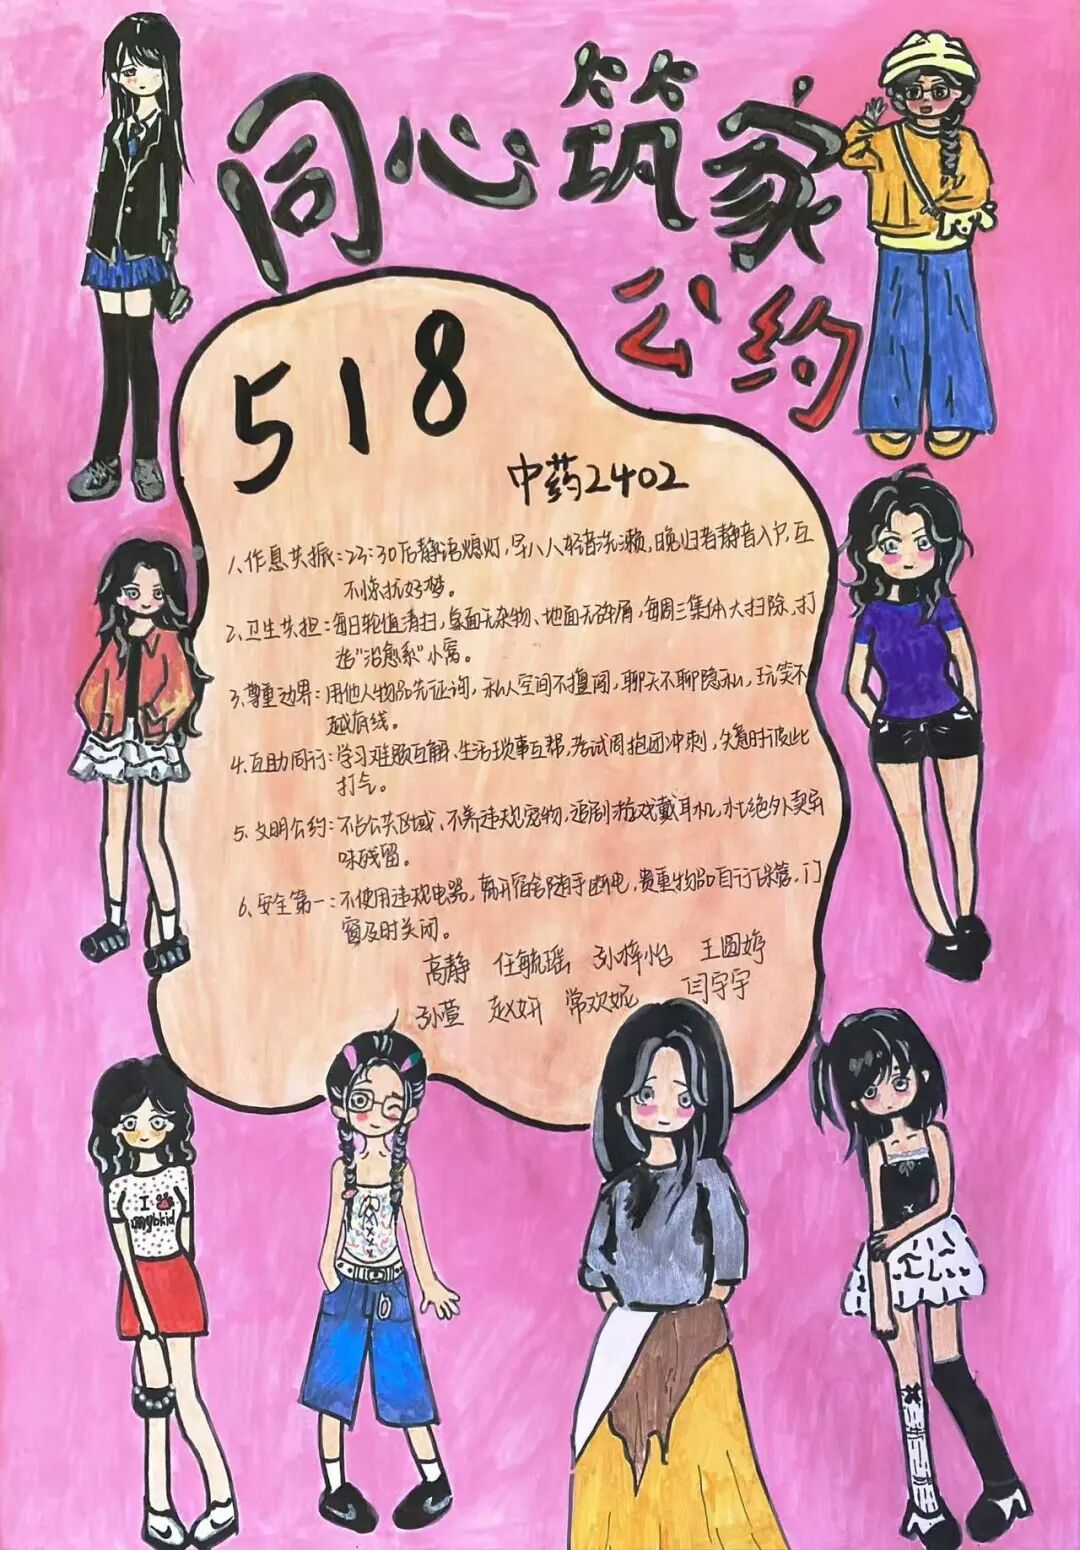 同心筑家
公约
518
中药2402
1.作息共振:23:30后静语熄灯,早八人轻音洗漱,晚归者静音入户,互
不惊扰好梦。
2.卫生共担:每日轮值清扫,桌面无杂物、地面无碎屑,每周三集体大扫除、打
造"治愈系"小窝。
3.尊重边界:用他人物品先征询,私人空间不擅闯,聊天不聊隐私,玩笑不
越底线。
4.互助同行:学习难题互解、生活琐事互帮,考试周抱团冲刺,失意时彼此
打气。
5.文明公约:不占公共区域、不养违规宠物,追剧游戏戴耳机,杜绝外卖异
味残留。
6.安全第一:不使用违规电器,离开宿舍随手断电,贵重物品自行保管,门
窗及时关闭。
高静 任毓瑶 孙梓怡 王圆婷
孙萱 赵妍 常欢妮 闫宇宇
I